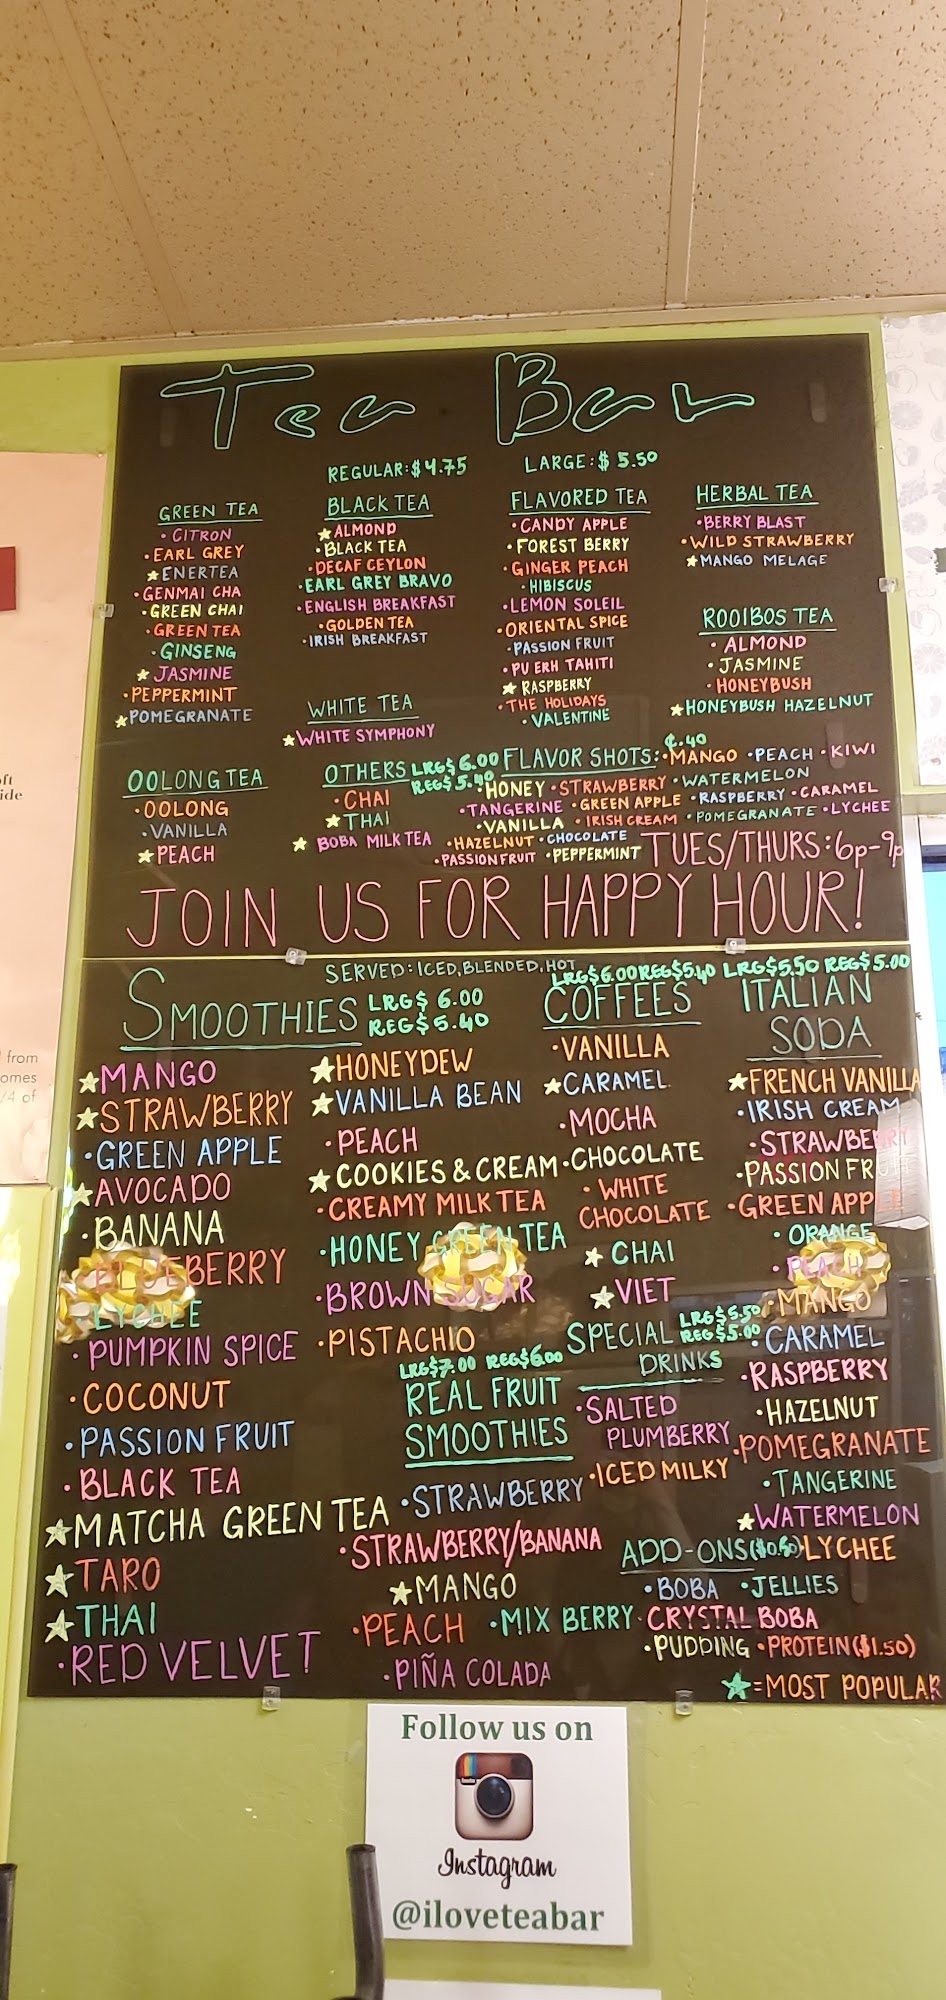 Tea Bar
REGULAR: $4.75
LARGE: $ 5.50
GREEN TEA
• CITRON
• EARL GREY
ENERTEA
• GENMAI CHA
• GREEN CHAI
• GREEN TEA
• GINSENG
JASMINE
• PEPPERMINT
POMEGRANATE
BLACK TEA
ALMOND
• BLACK TEA
• DECAF CEYLON
• EARL GREY BRAVO
• ENGLISH BREAKFAST
• GOLDEN TEA
• IRISH BREAKFAST
WHITE TEA
WHITE SYMPHONY
FLAVORED TEA
• CANDY APPLE
• FOREST BERRY
• GINGER PEACH
• HIBISCUS
• LEMON SOLEIL
• ORIENTAL SPICE
• PASSION FRUIT
• PU ERH TAHITI
RASPBERRY
• THE HOLIDAYS
• VALENTINE
HERBAL TEA
• BERRY BLAST
• WILD STRAWBERRY
MANGO MELAGE
ROOIBOS TEA
• ALMOND
• JASMINE
• HONEYBUSH
HONEYBUSH HAZELNUT
OOLONG TEA
• OOLONG
• VANILLA
PEACH
OTHERS LRG$ 6.00
REG$ 5.40
• CHAI
THAI
BOBA MILK TEA
FLAVOR SHOTS: ¢.40
• MANGO • PEACH • KIWI
• HONEY • STRAWBERRY • WATERMELON
• TANGERINE • GREEN APPLE • RASPBERRY • CARAMEL
• VANILLA • IRISH CREAM • POMEGRANATE • LYCHEE
• HAZELNUT • CHOCOLATE
• PASSIONFRUIT • PEPPERMINT
TUES/THURS: 6p-9p
JOIN US FOR HAPPY HOUR!
SERVED: ICED, BLENDED, HOT
SMOOTHIES LRG$ 6.00
REG$ 5.40
MANGO
STRAWBERRY
• GREEN APPLE
AVOCADO
• BANANA
BLUEBERRY
LYCHEE
• PUMPKIN SPICE
• COCONUT
• PASSION FRUIT
• BLACK TEA
MATCHA GREEN TEA
TARO
THAI
• RED VELVET
HONEYDEW
VANILLA BEAN
• PEACH
COOKIES & CREAM
• CREAMY MILK TEA
• HONEY GREEN TEA
• BROWN SUGAR
• PISTACHIO
LRG$7.00 REG$6.00
REAL FRUIT
SMOOTHIES
• STRAWBERRY
• STRAWBERRY/BANANA
MANGO
• PEACH • MIX BERRY
• PIÑA COLADA
LRG$6.00 REG$5.40
COFFEES
• VANILLA
CARAMEL
• MOCHA
• CHOCOLATE
• WHITE
CHOCOLATE
CHAI
VIET
SPECIAL LRG$5.50
REG$5.00
DRINKS
• SALTED
PLUMBERRY
• ICED MILKY
LRG$5.50 REG$5.00
ITALIAN
SODA
FRENCH VANILLA
• IRISH CREAM
• STRAWBERRY
• PASSION FRUIT
• GREEN APPLE
• ORANGE
• PEACH
• MANGO
• CARAMEL
• RASPBERRY
• HAZELNUT
• POMEGRANATE
• TANGERINE
WATERMELON
• LYCHEE
ADD-ONS ($0.50)
• BOBA • JELLIES
• CRYSTAL BOBA
• PUDDING • PROTEIN ($1.50)
= MOST POPULAR
Follow us on
Instagram
@iloveteabar
from
omes
/4 of
ide